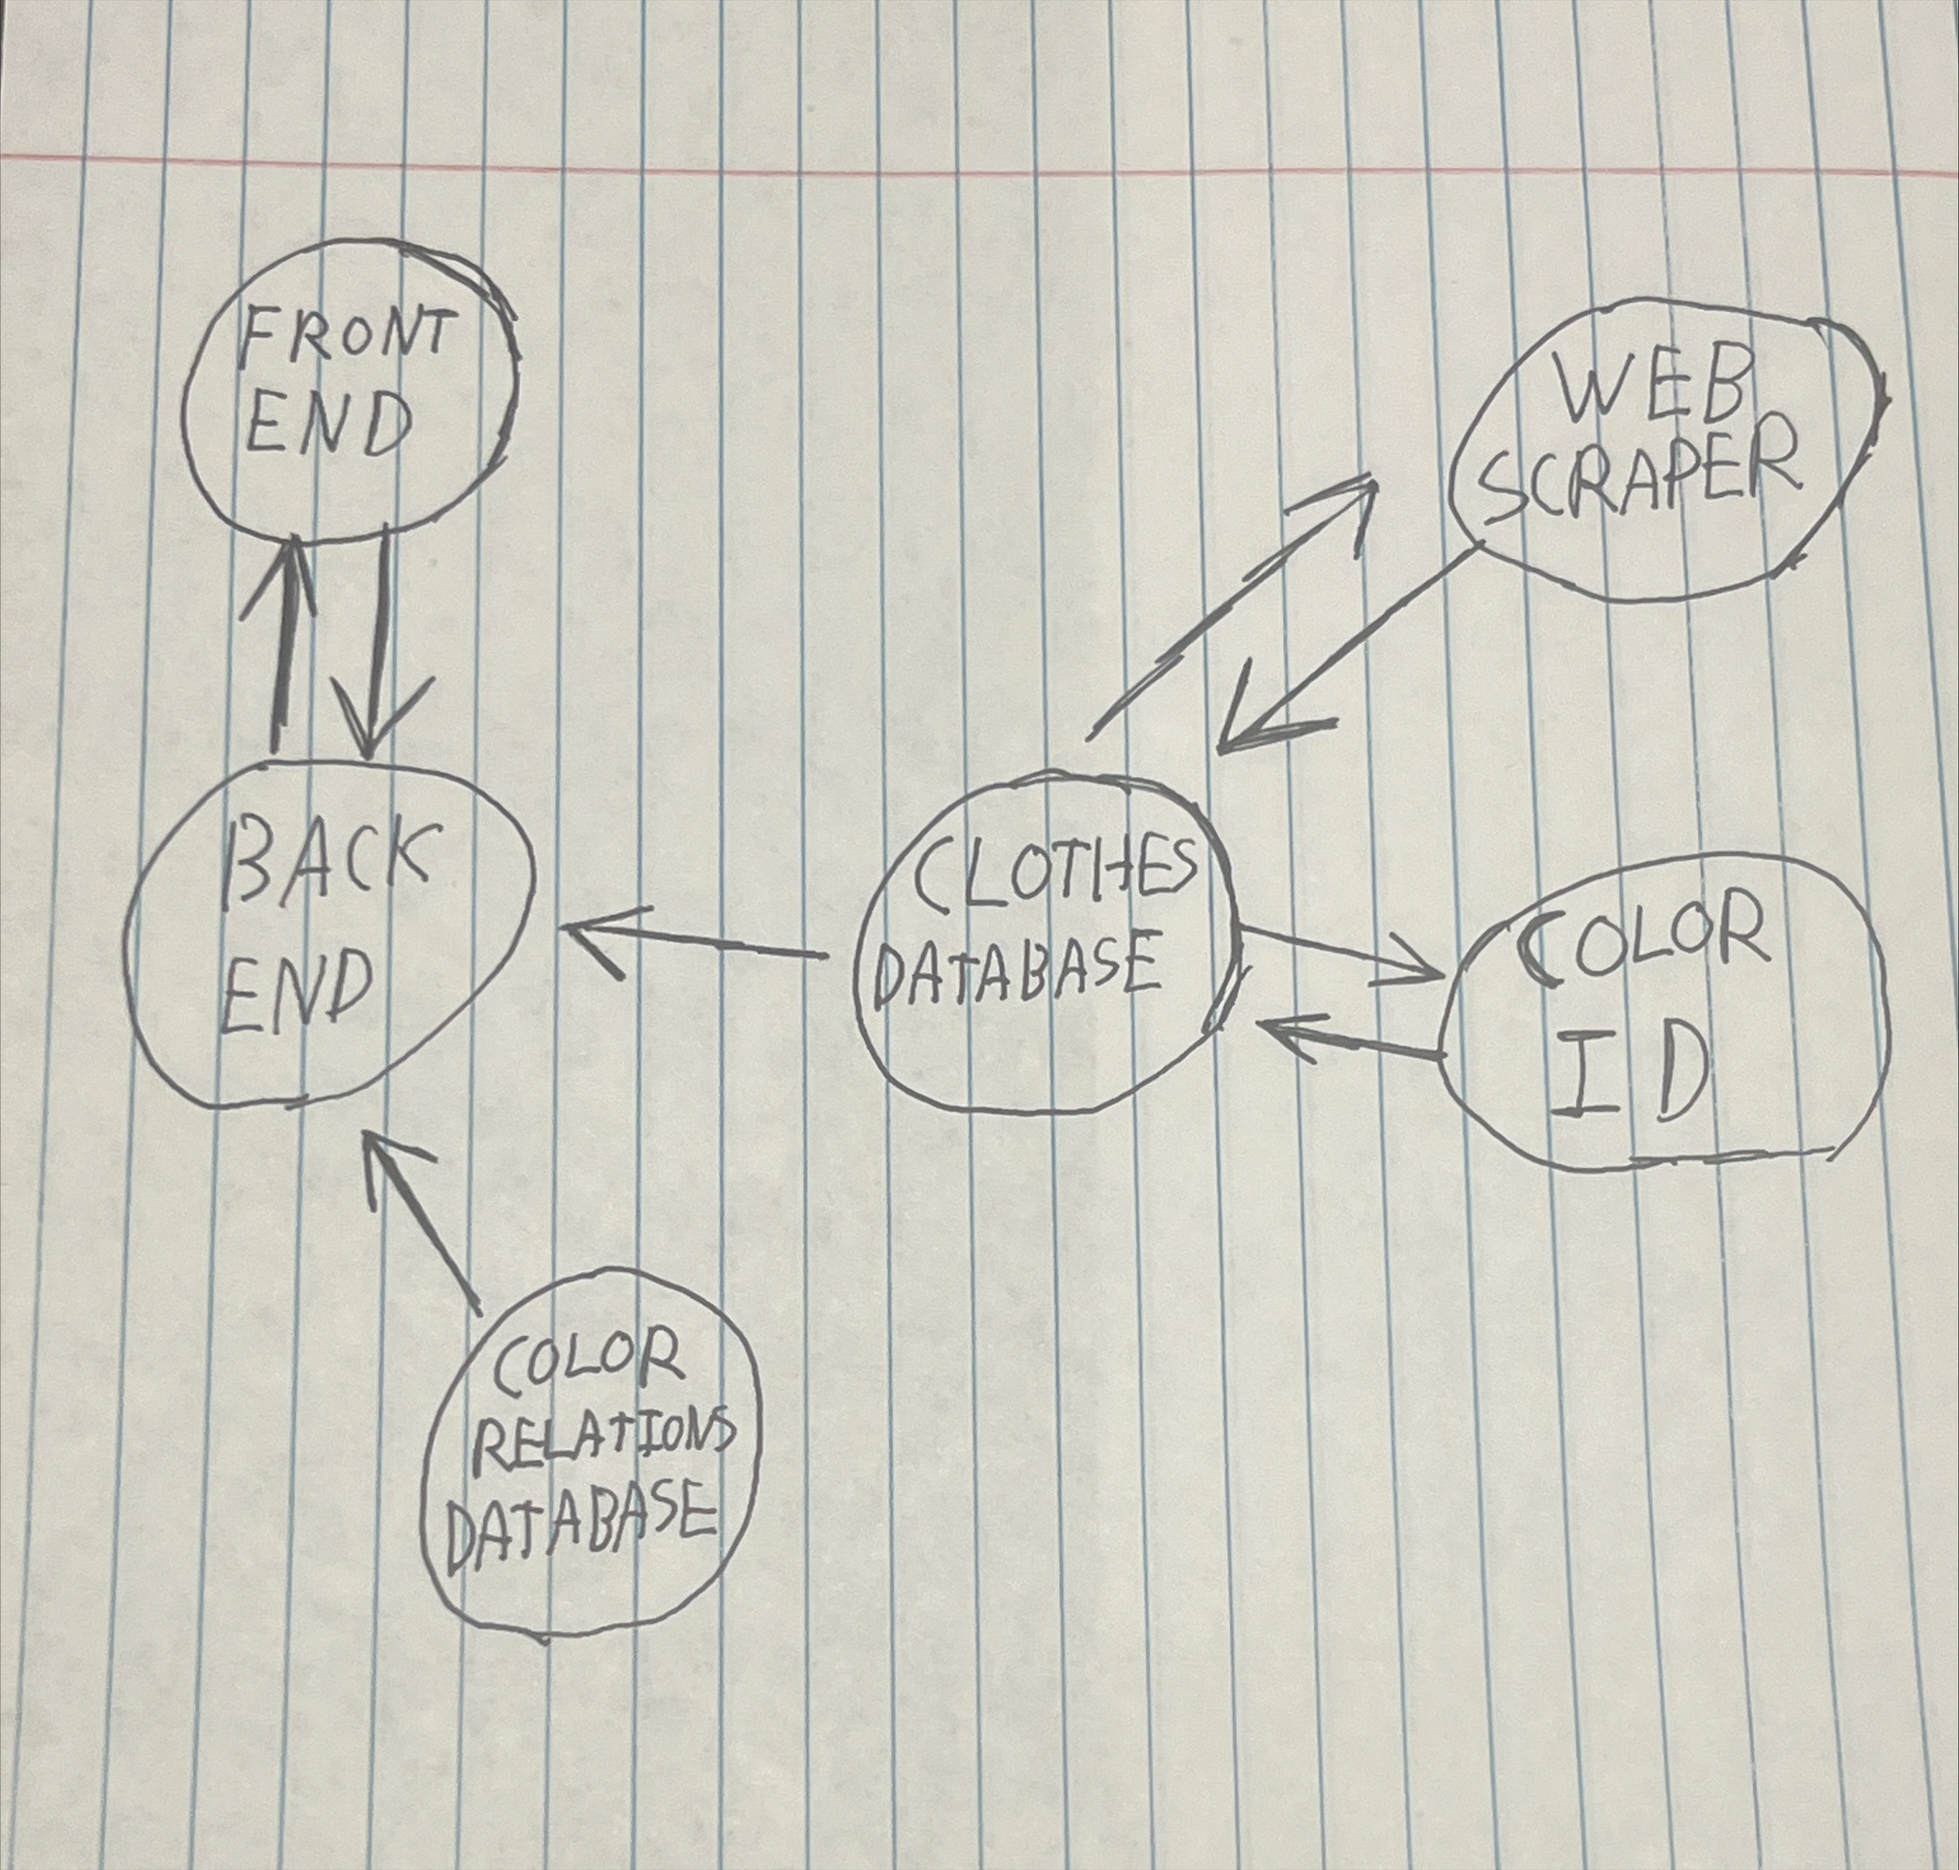 FRONT
END
WEB
SCRAPER
BACK
END
CLOTHES
DATABASE
COLOR
ID
COLOR
RELATIONS
DATABASE